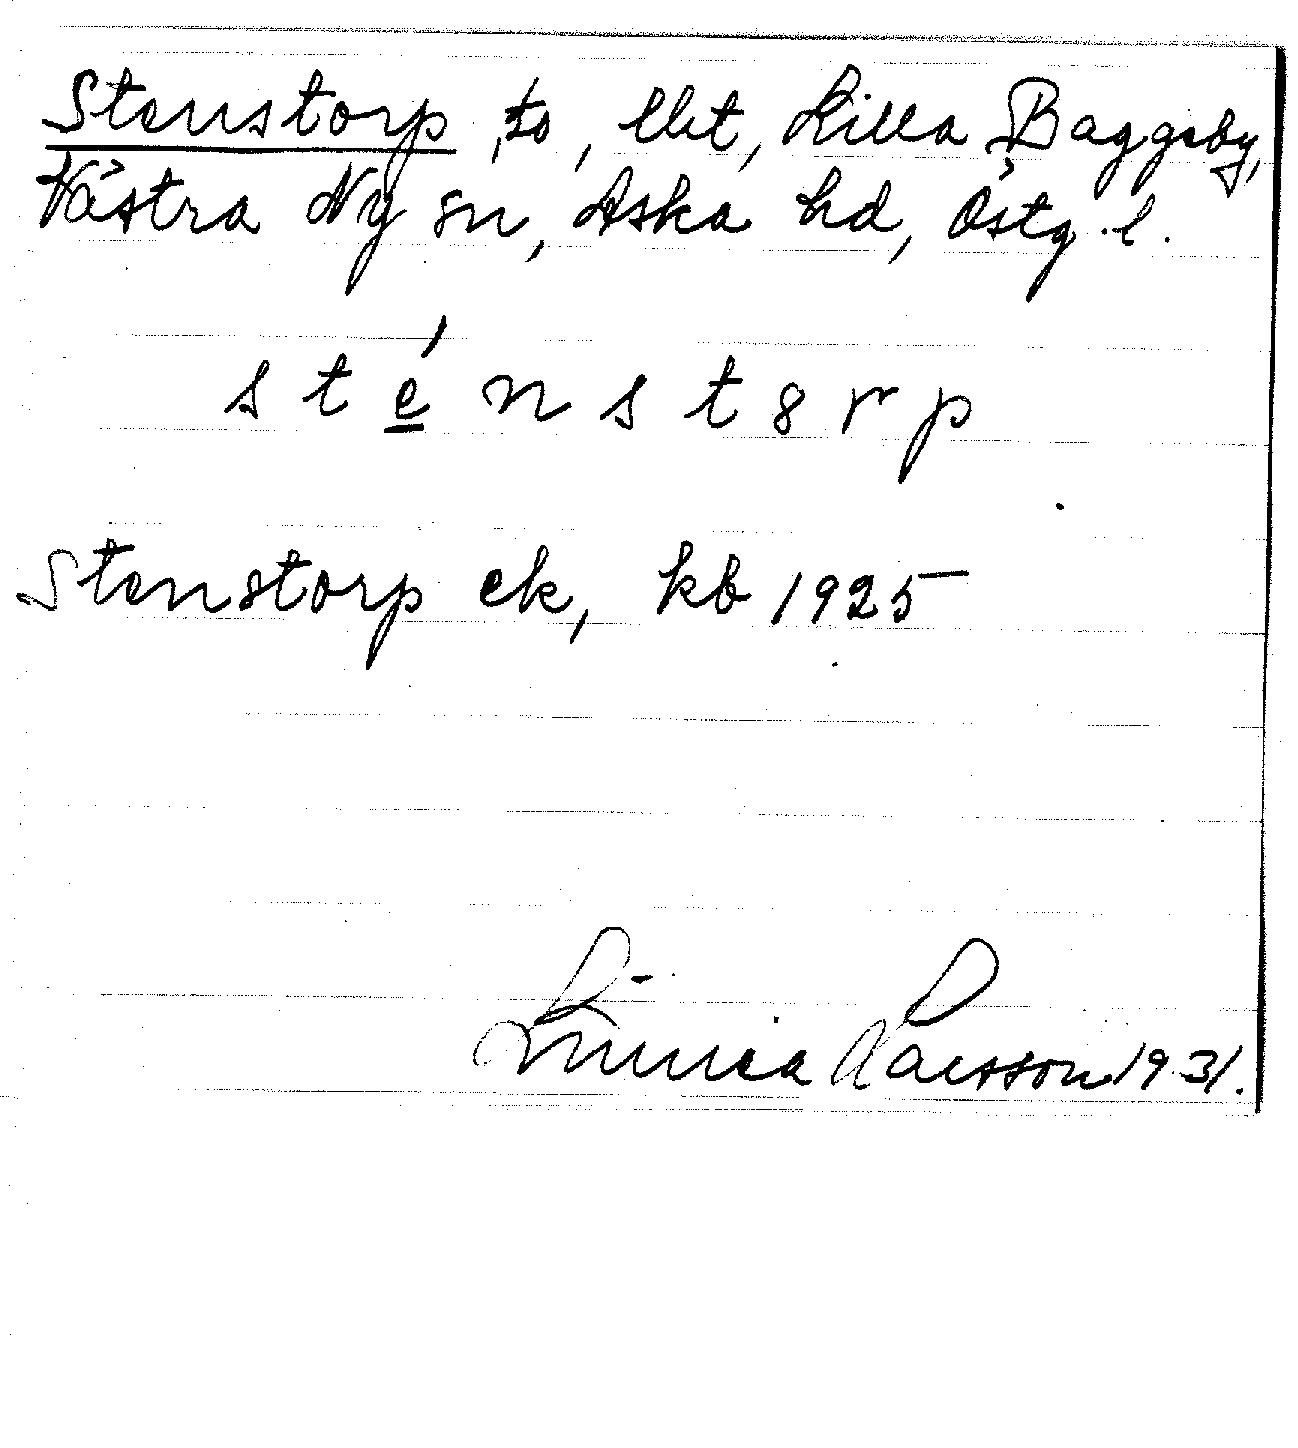 Stenstorp, to, lht, Lilla Baggeby,
Västra Ny sn, Aska hd, Östg. l.
s t é n s t 8 r p
Stenstorp ek, kb 1925
Linnea Larsson 1931.